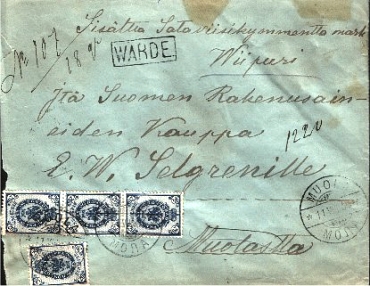 Sisältää Sataviisikymmentä mark
No 107
18 gr
WARDE.
Wiipuri
Itä Suomen Rakenusain-
eiden Kauppa
1220
E. W. Selgrenille
MUOL
MOJA
Muolasta